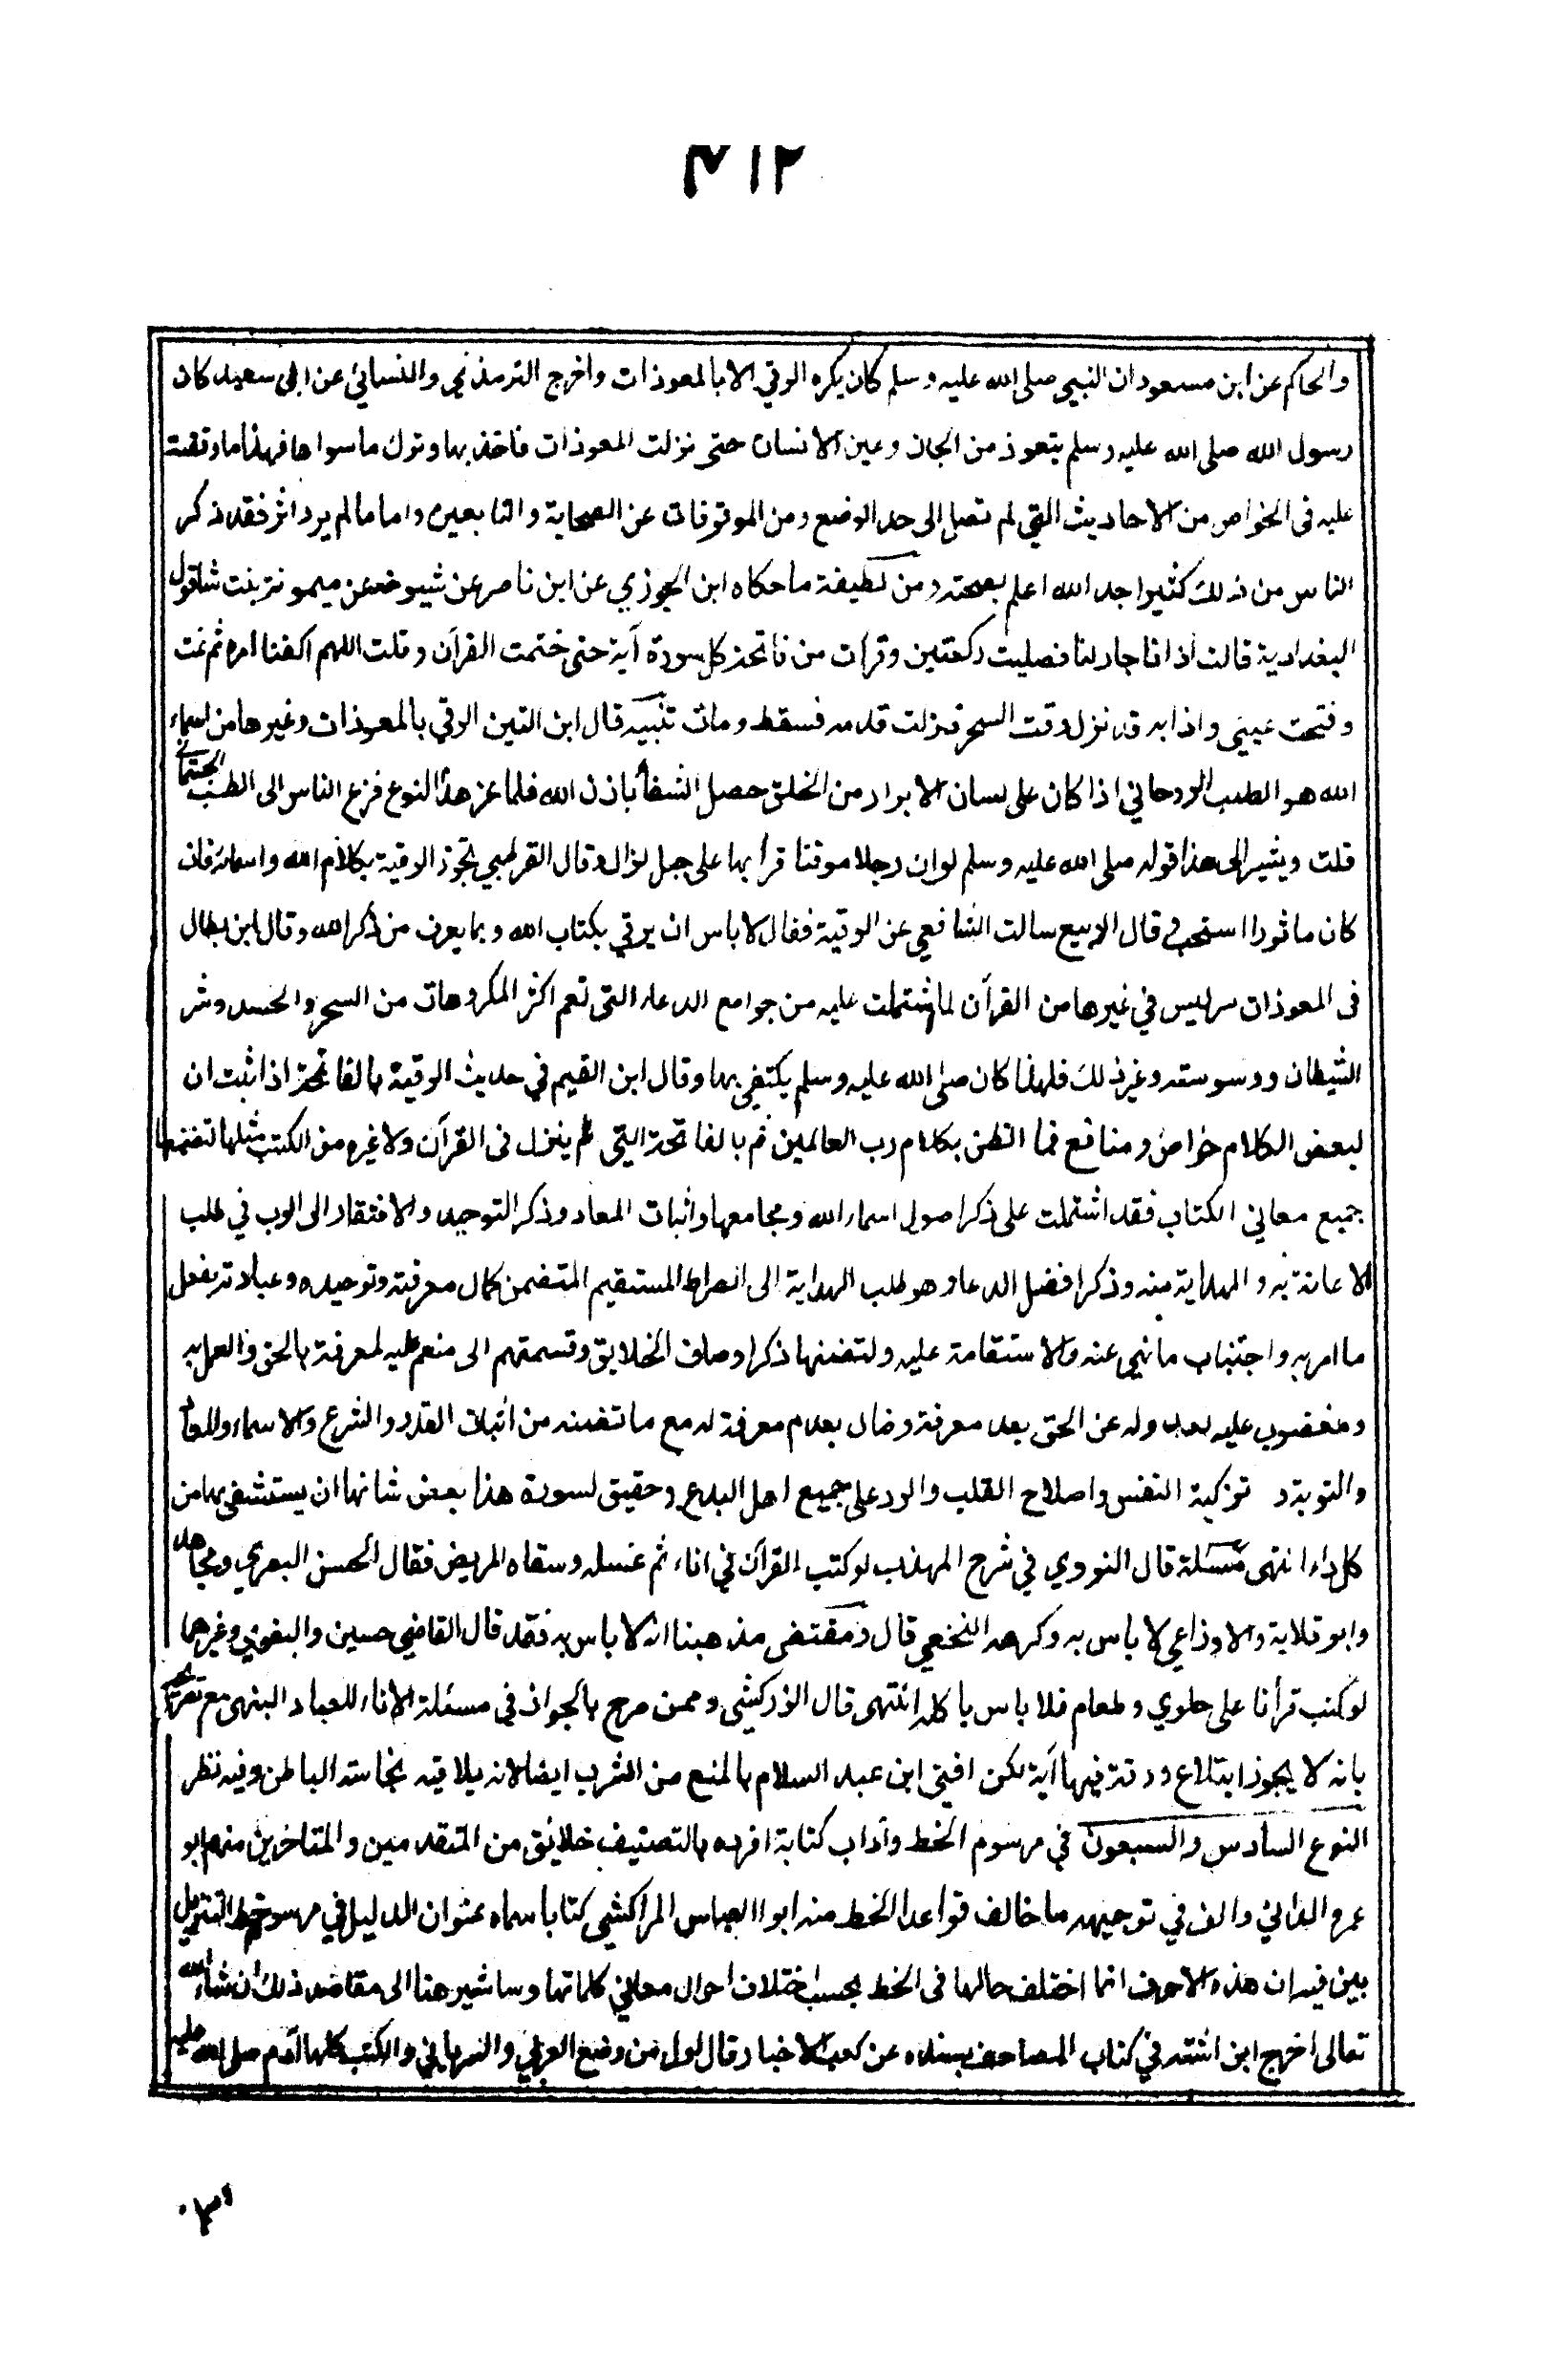 ٣١٢
والحاكم عن ابن مسعود ان النبي صلى الله عليه وسلم كان يكره الرقي الا بالمعوذات واخرج الترمذي والنسائي عن ابي سعيد كان
رسول الله صلى الله عليه وسلم يتعوذ من الجان وعين الانسان حتى نزلت المعوذات فاخذ بها وترك ما سواها فهذا ما وقفت
عليه في الخواص من الاحاديث التي لم تصل الى حد الوضع ومن الموقوفات عن الصحابة والتابعين واما ما لم يرد اثر فقد ذكر
الناس من ذلك كثيرا جدا الله اعلم بصحته ومن لطيفة ما حكاه ابن الجوزي عن ابن ناصر عن شيوخه عن ميمونة بنت شاقول
البغدادية قالت اذانا جار لنا فصليت ركعتين وقرات من فاتحة كل سورة آية حتى ختمت القرآن وقلت اللهم اكفنا امره ثم نمت
وفتحت عيني واذا به قد نزل وقت السحر فزلت قدمه فسقط ومات تنبيه قال ابن التين الرقي بالمعوذات وغيرها من اسماء
الله هو الطب الروحاني اذا كان على لسان الابرار من الخلق حصل الشفأ باذن الله فلما عز هذا النوع فزع الناس الى الطب الجثماني
قلت ويشير الى هذا قوله صلى الله عليه وسلم لو ان رجلا موقنا قرأ بها على جبل لزال وقال القرطبي تجوز الرقية بكلام الله واسمائه فان
كان ماثورا استحب قال الربيع سالت الشافعي عن الرقية فقال لا باس ان يرقي بكتاب الله وبما يعرف من ذكر الله وقال ابن بطال
في المعوذات سر ليس في غيرها من القرآن لما اشتملت عليه من جوامع الدعاء التي تعم اكثر المكروهات من السحر والحسد وشر
الشيطان ووسوسته وغير ذلك فلهذا كان صلى الله عليه وسلم يكتفي بها وقال ابن القيم في حديث الرقية بالفاتحة اذا ثبت ان
لبعض الكلام خواص ومنافع فما الظن بكلام رب العالمين ثم بالفاتحة التي لم ينزل في القرآن ولا غيره من الكتب مثلها لتضمنها
جميع معاني الكتاب فقد اشتملت على ذكر اصول اسماء الله ومجامعها واثبات المعاد وذكر التوحيد والافتقار الى الرب في طلب
الاعانة به والهداية منه وذكر افضل الدعاء وهو طلب الهداية الى الصراط المستقيم المتضمن كمال معرفته وتوحيده وعبادته بفعل
ما امر به واجتناب ما نهى عنه والاستقامة عليه ولتضمنها ذكر اوصاف الخلايق وقسمتهم الى منعم عليه لمعرفة بالحق والعمل به
ومغضوب عليه لعدوله عن الحق بعد معرفة وضال بعدم معرفة له مع ما تضمنه من اثبات القدر والشرع والاسماء والمعاد
والتوبة و تزكية النفس واصلاح القلب والرد على جميع اهل البدع وحقيق لسورة هذا بعض شانها ان يستشفى بها من
كل داء انتهى مسئلة قال النووي في شرح المهذب لو كتب القرآن في اناء ثم غسله وسقاه المريض فقال الحسن البصري ومجاهد
وابو قلابة والاوزاعي لا باس به وكرهه النخعي قال ومقتضى مذهبنا انه لا باس به فقد قال القاضي حسين والبغوي وغيرهما
لو كتب قرأنا على حلوي وطعام فلا باس باكله انتهى قال الزركشي وممن صرح بالجواز في مسئلة الاناء للعباد النبهى مع تصريحه
بانه لا يجوز ابتلاع ورقة فيها آية لكن افتى ابن عبد السلام بالمنع من الشرب ايضا لانه يلاقيه نجاسة الباطن وفيه نظر
النوع السادس والسبعون في مرسوم الخط وآداب كتابة افرده بالتصنيف خلائق من المتقدمين والمتاخرين منهم ابو
عمرو الداني والف في توجيهه ما خالف قواعد الخط منه ابو االعباس المراكشي كتابا سماه عنوان الدليل في مرسوم خط التنزيل
بين فيه ان هذه الاحرف انما اختلف حالها في الخط بحسب اختلاف احوال معاني كلماتها وساشير هنا الى مقاصد ذلك ان شاء الله
تعالى اخرج ابن اشته في كتاب المصاحف بسنده عن كعب الاخبار قال اول من وضع العربي والسرياني والكتب كلها آدم صلى الله عليه